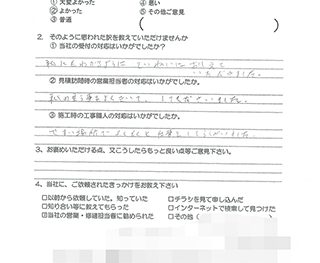 ① 大変よかった ④ 悪い
② よかった ⑤ その他ご意見
③ 普通 ( )
2. そのように思われた訳を教えていただけませんか
① 当社の受付の対応はいかがでしたか?
私にもわかるように ていねいに
いただきました。
② 見積訪問時の営業担当者の対応はいかがでしたか?
して下さいました。
③ 施工時の工事職人の対応はいかがでしたか?
作業してくださいました。
3、お褒めいただける点、又こうしたらもっと良い点等ご意見下さい。
4、当社に、ご依頼されたきっかけをお教え下さい
□以前から依頼していた。知っていた □チラシを見て申し込んだ
□知り合い等に教えてもらった □インターネットで検索して見つけた
☑当社の営業・修繕担当者に勧められた □その他(